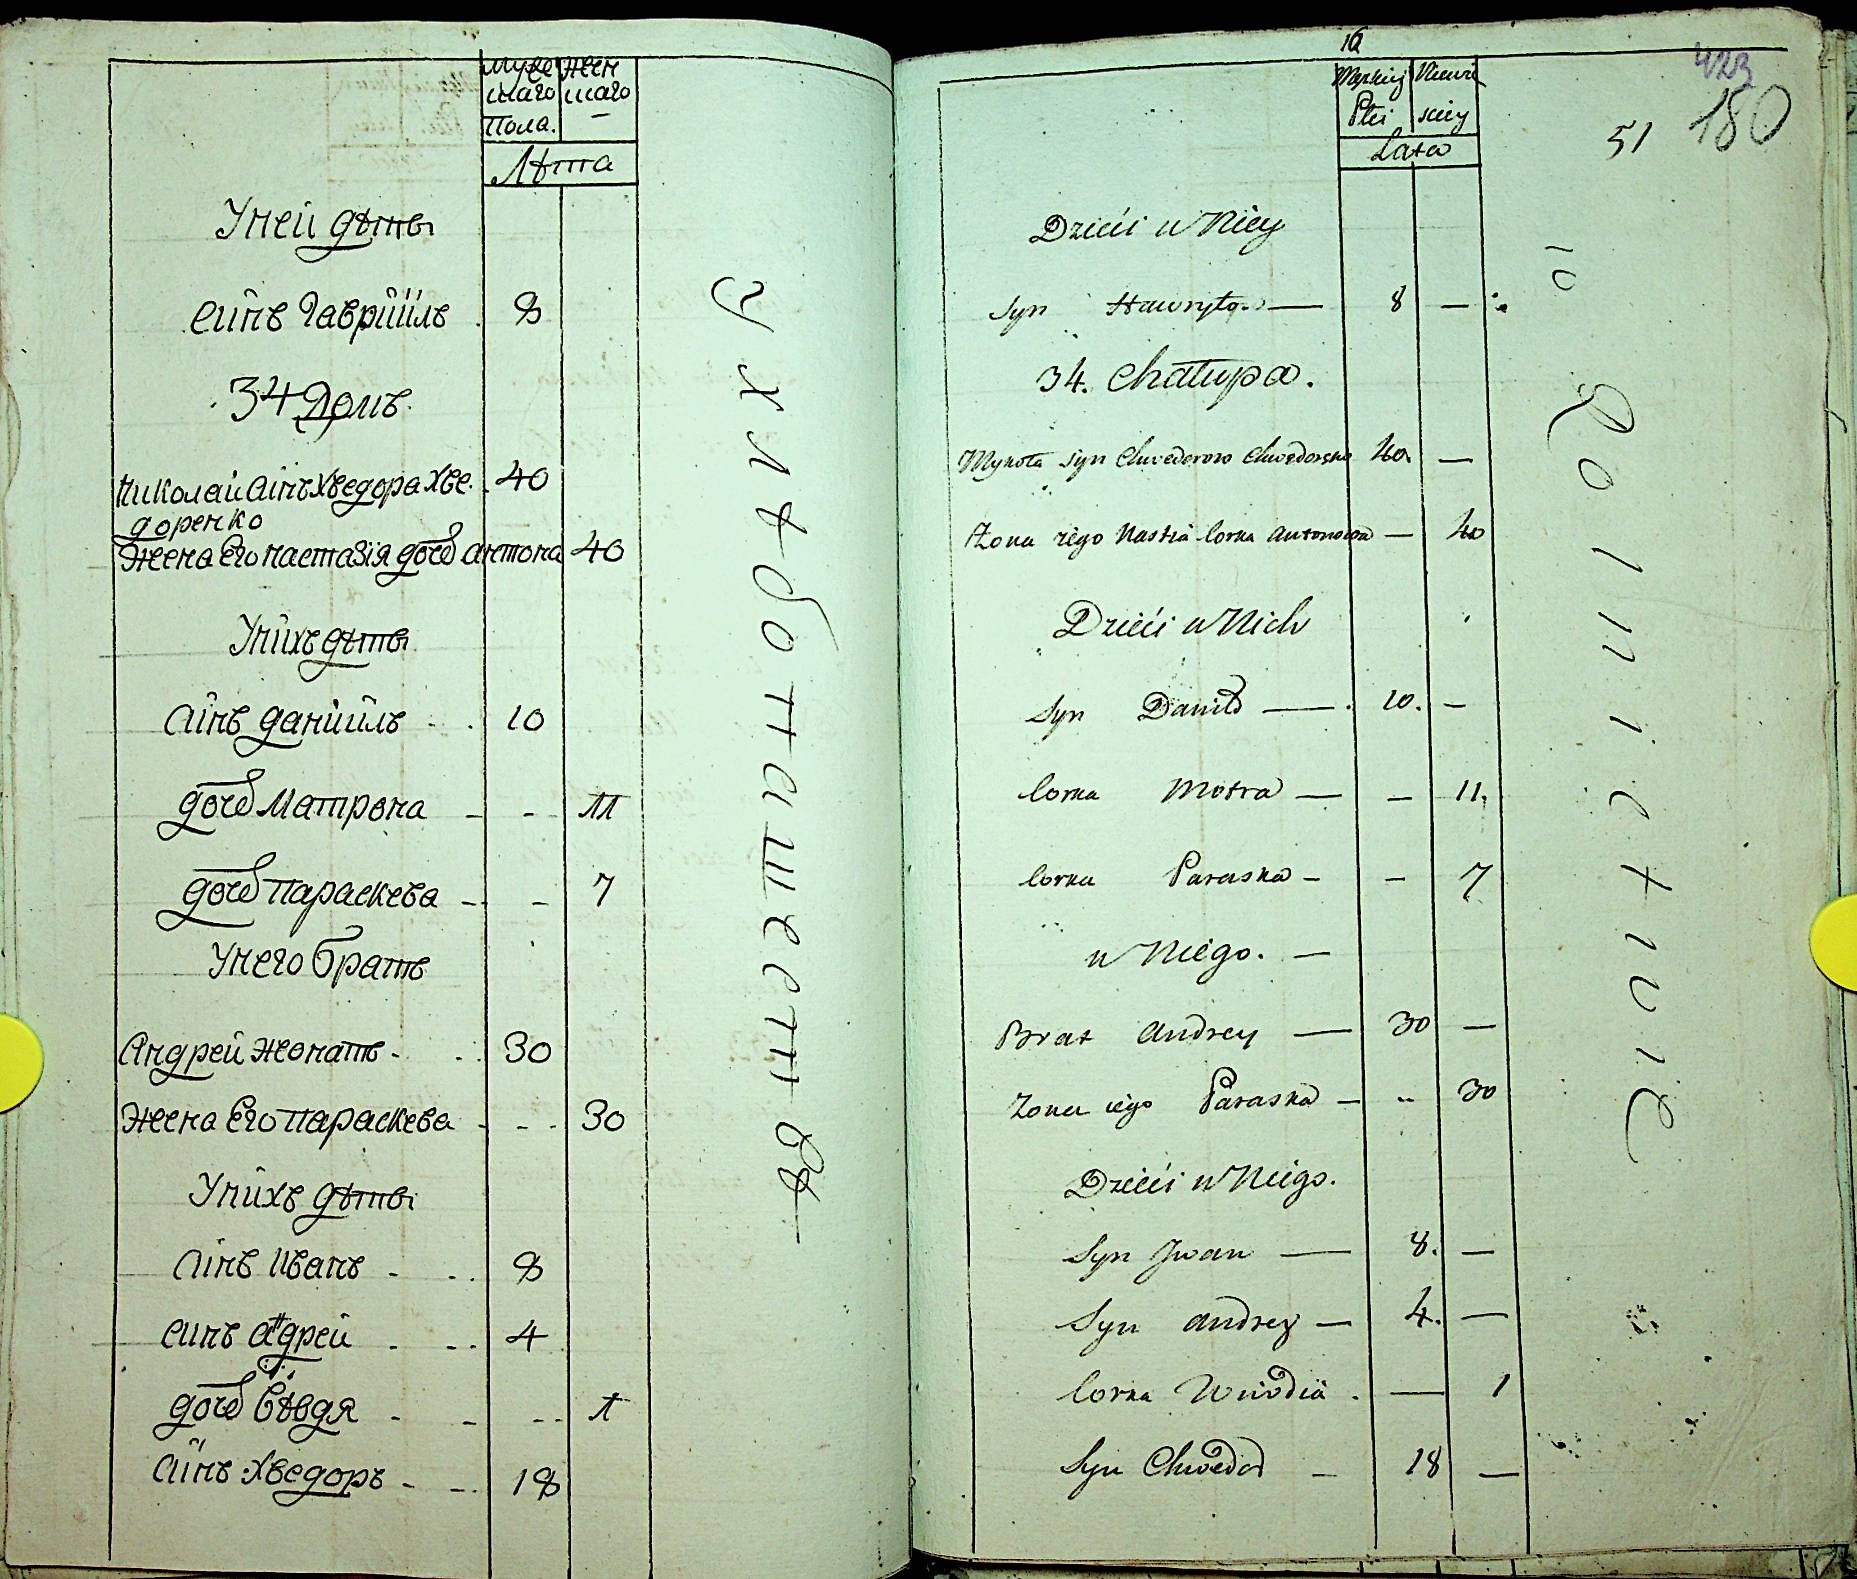 Муже Жен
скаго скаго
пола. –
Лѣта
Унеи дѣты
синъ Гаврiилъ . 8
34 Домъ.
Николай синъ Хведора Хве. 40
доренко
Жена Его настазiя дочь антона 40
Унихъ дѣты
синъ данiилъ - . 10
дочь Матрона - - - 11
дочь параскева - - 7
Унего братъ
Андрей женатъ - . 30
Жена Его параскева - - - 30
Унихъ дѣты
синъ Иванъ - .. 8
синъ анⷣрей . -.. 4
дочь Евдя - - -- 1
синъ Хведоръ - -. 18
Ухлѣбопашествѣ
16
Męzkiey Niewie
Płci skiey
Lata
423
51 180
Dzieći u Niey
Syn Hawryło — 8 —
34. Chałupa.
Mykoła syn Chwedorow Chwedorenko 40. —
Żona iego Nastia Corka Antonowa — 40
Dzieći u Nich
Syn Daniło — 10. —
Corka Motra — — 11.
Corka Paraska — – 7
u Niego. —
Brat Andrey — 30 —
Żona iego Paraska — .. 30
Dzieći u Niego.
Syn Iwan — 8. —
Syn Andrey — 4. —
Corka Wiwdia . — 1
Syn Chwedor — 18 —
Rolnictwie